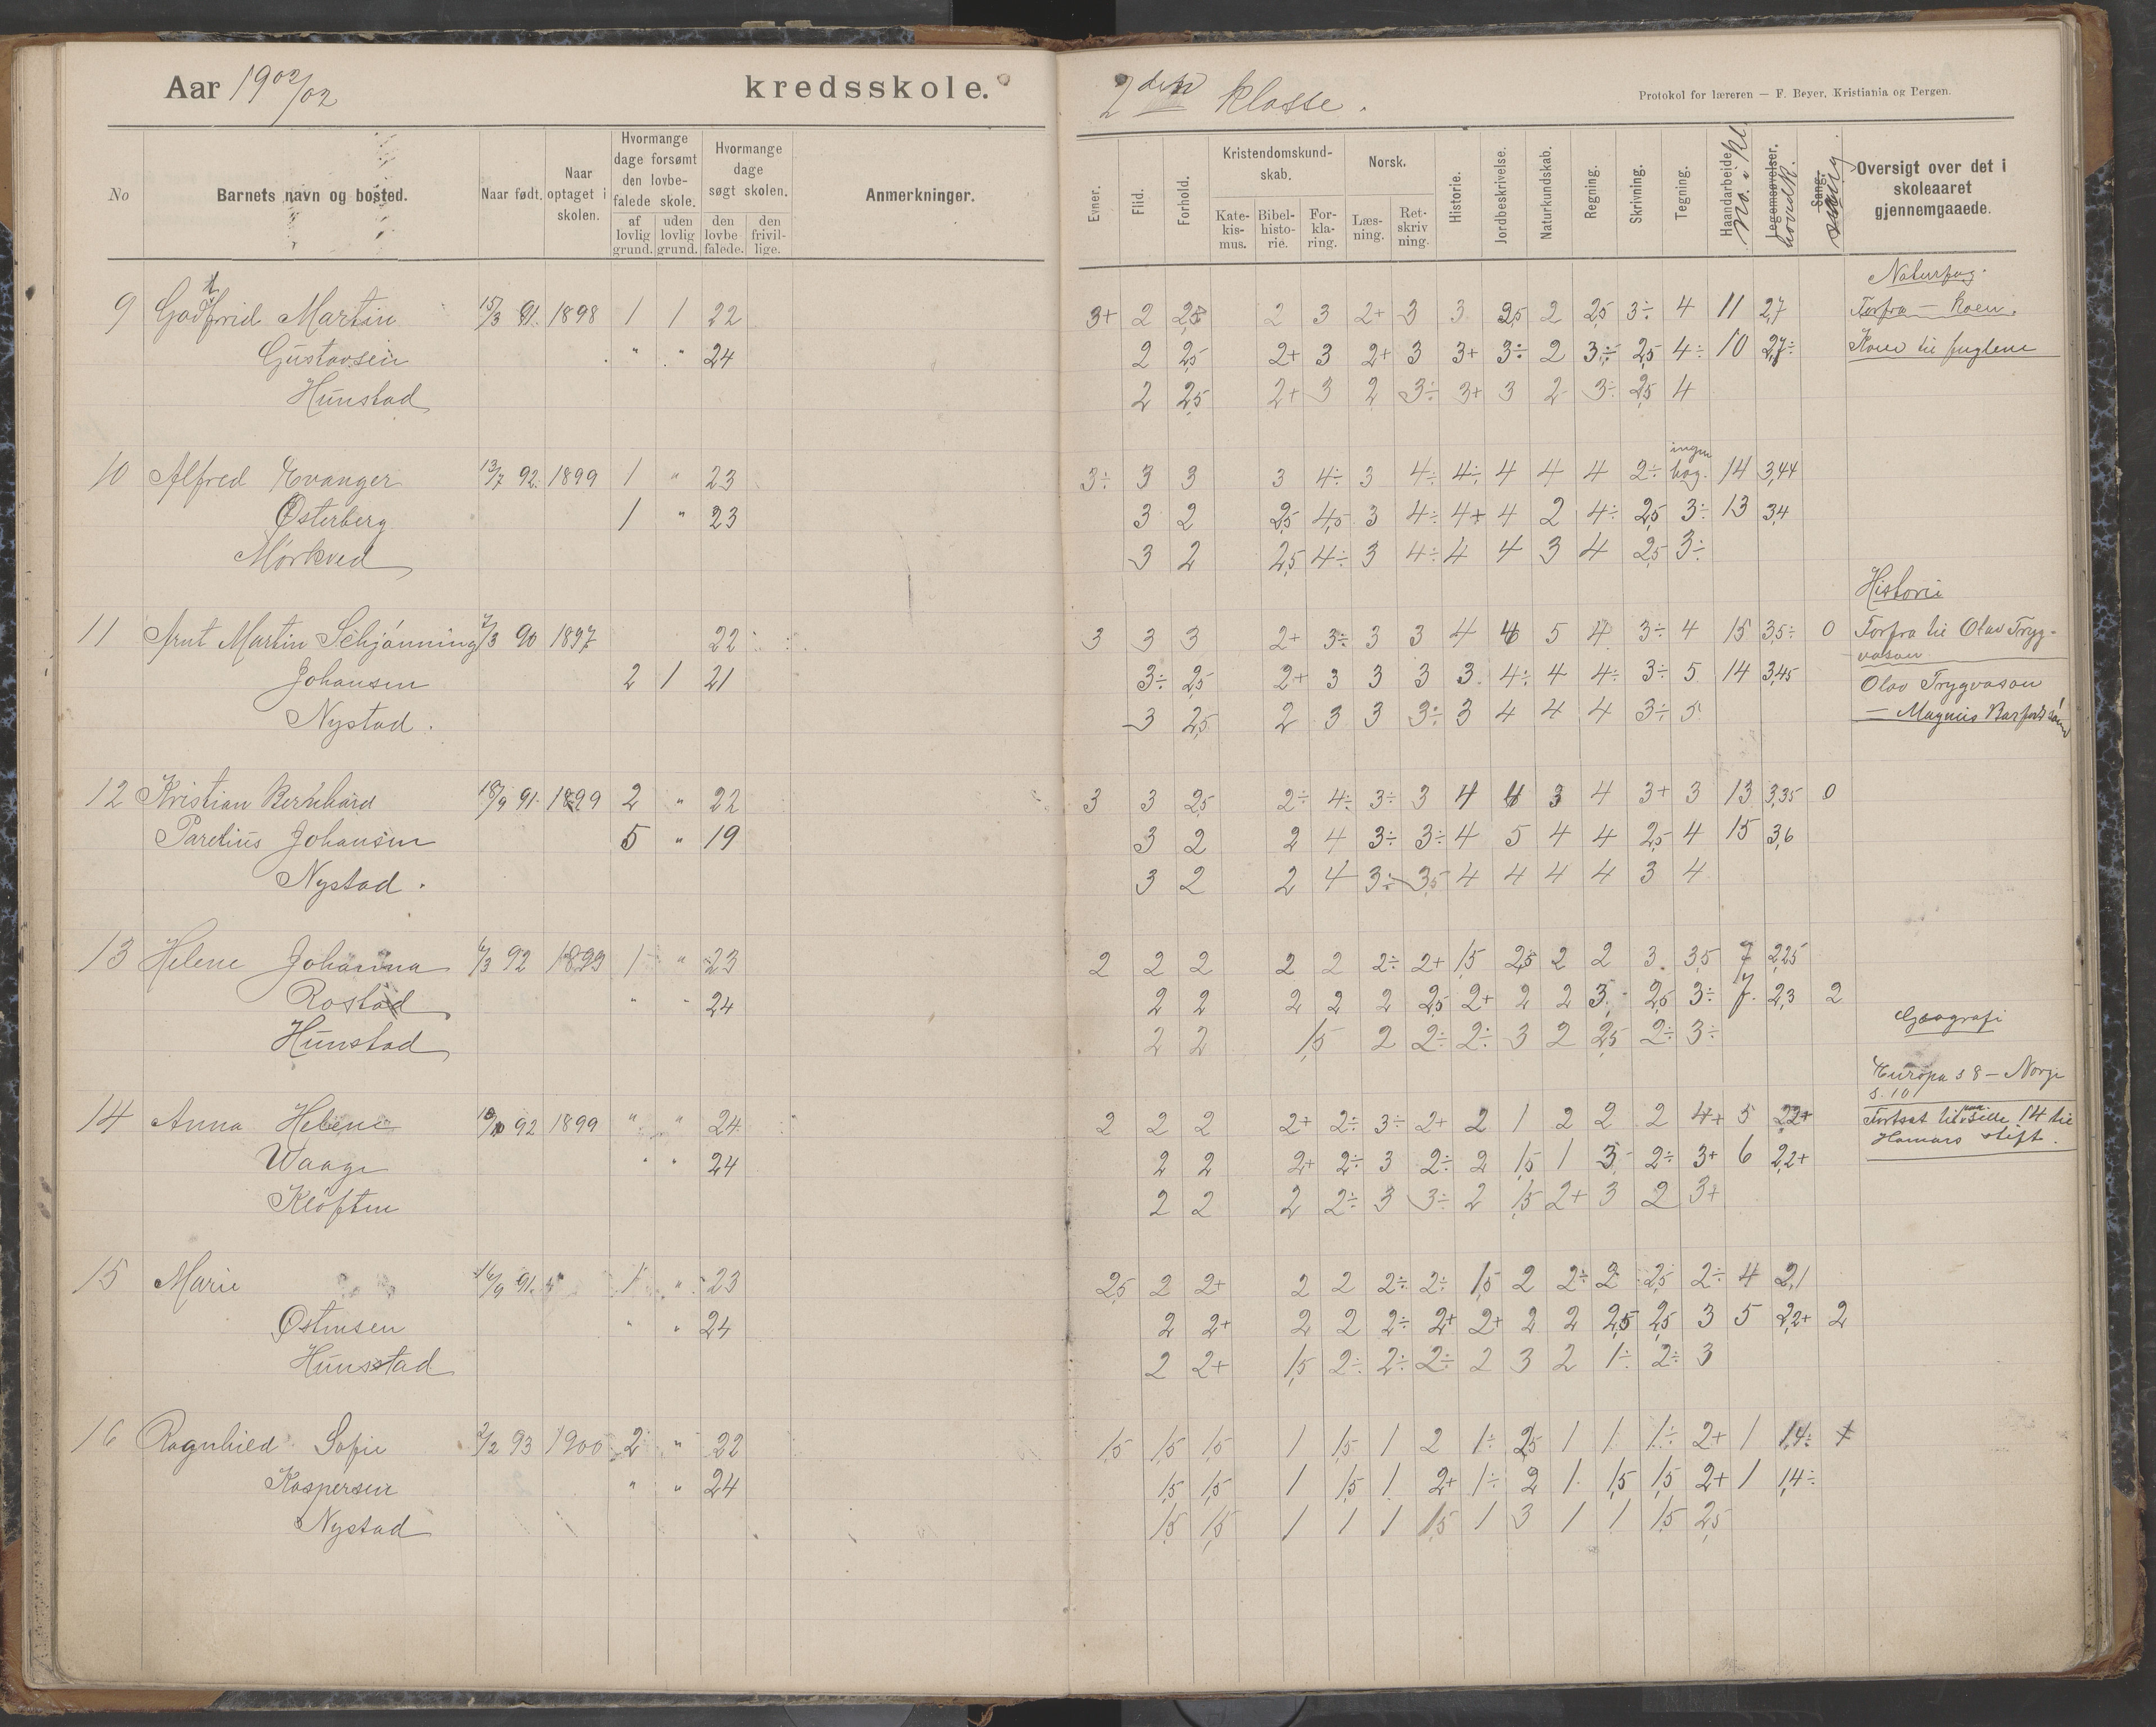 Aar 1902/02 kredsskole. 2den klasse.
Protokol for læreren — F. Beyer, Kristiania og Bergen.
No Barnets navn og bosted. Naar født. Naar optaget i skolen. Hvormange dage forsømt den lovbefalede skole. af lovlig grund. uden lovlig grund. Hvormange dage søgt skolen. den lovbefalede. den frivillige. Anmerkninger. Evner. Flid. Forhold. Kristendomskundskab. Katekismus. Bibelhistorie. Forklaring. Norsk. Læsning. Retskrivning. Historie. Jordbeskrivelse. Naturkundskab. Regning. Skrivning. Tegning. Haandarbeide. No. i kl. Legemsøvelser. hovedk. Sang. sang Oversigt over det i skoleaaret gjennemgaaede.
Naturfag.
9 Godtfrid Martin 15/3 91. 1898 1 1 22 3+ 2 2,5 2 3 2+ 3 3 2,5 2 2,5 3÷ 4 11 2,7 Forfra — Koen.
Gustavsen " " 24 2 2,5 2+ 3 2+ 3 3+ 3÷ 2 3÷ 2,5 4÷ 10 2,7÷ Koen til fuglene
Hunstad 2 2,5 2+ 3 2 3÷ 3+ 3 2 3÷ 2,5 4
10 Alfred Evanger 13/7 92. 1899 1 " 23 3÷ 3 3 3 4÷ 3 4÷ 4÷ 4 4 4 2÷ ingen bog. 14 3,44
Østerberg 1 " 23 3 2 2,5 4,5 3 4÷ 4+ 4 2 4÷ 2,5 3÷ 13 3,4
Mørkved 3 2 2,5 4÷ 3 4÷ 4 4 3 4 2,5 3÷
Historie
11 Arnt Martin Schjønning 7/3 90 1897 22 3 3 3 2+ 3÷ 3 3 4 4 5 4 3÷ 4 15 3,5÷ 0 Forfra til Olav Trygvason
Johansen 2 1 21 3÷ 2,5 2+ 3 3 3 3 4÷ 4 4÷ 3÷ 5 14 3,45 Olav Trygvason
Nystad. 3 2,5 2 3 3 3÷ 3 4 4 4 3÷ 5 — Magnus Barfods sønner
12 Kristian Bernhard 18/9 91. 1899 2 " 22 3 3 2,5 2÷ 4÷ 3÷ 3 4 4 3 4 3+ 3 13 3,35 0
Paretius Johansen 5 " 19 3 2 2 4 3÷ 3÷ 4 5 4 4 2,5 4 15 3,6
Nystad. 3 2 2 4 3÷ 3,5 4 4 4 4 3 4
13 Helene Johanna 6/3 92 1899 1 " 23 2 2 2 2 2 2÷ 2+ 1,5 2,5 2 2 3 3,5 7 2,25
Rostad " " 24 2 2 2 2 2 2,5 2+ 2 2 3 2,5 3÷ 7. 2,3 2
Hunstad 2 2 1,5 2 2÷ 2÷ 3 2 2,5 2÷ 3÷
Geografi
Europa s 8 — Norge
s. 10
14 Anna Helene 92 1899 " " 24 2 2 2 2+ 2÷ 3÷ 2+ 2 1 2 2 2 4+ 5 2,2+ Fortsat til side 14 til
Hamars stift.
Waage " " 24 2 2 2+ 2÷ 3 2÷ 2 1,5 1 3 2÷ 3+ 6 2,2+
Kløften 2 2 2 2÷ 3 3÷ 2 1,5 2+ 3 2 3+
15 Marie 16/9 91. " 1 " 23 2,5 2 2+ 2 2 2÷ 2÷ 1,5 2 2÷ 2 2,5 2÷ 4 2,1
Østensen " " 24 2 2+ 2 2 2÷ 2+ 2+ 2 2 2,5 2,5 3 5 2,2+ 2
Hunsstad 2 2+ 1,5 2÷ 2÷ 2÷ 2 3 2 1÷ 2÷ 3
16 Ragnhild Sofie 2/2 93 1900 2 " 22 1,5 1,5 1,5 1 1,5 1 2 1÷ 2,5 1 1 1÷ 2+ 1 1,4÷
Kaspersen " " 24 1,5 1,5 1 1,5 1 2+ 1÷ 2 1 1,5 1,5 2+ 1 1,4÷
Nystad 1,5 1,5 1 1 1 1,5 1 3 1 1 1,5 2,5